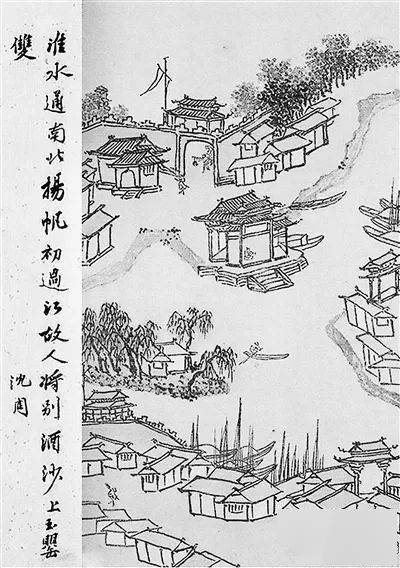 淮水通南北揚帆初過江故人將別酒沙上玉罌
雙
沈周